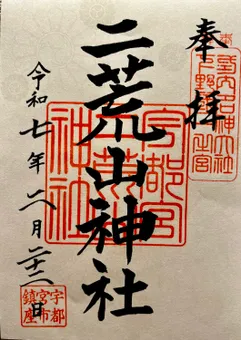 奉拝
下野國一之宮
二荒山神社
宇都宮
二荒山
神社
令和七年六月二十二日
宇都
宮市
鎮座